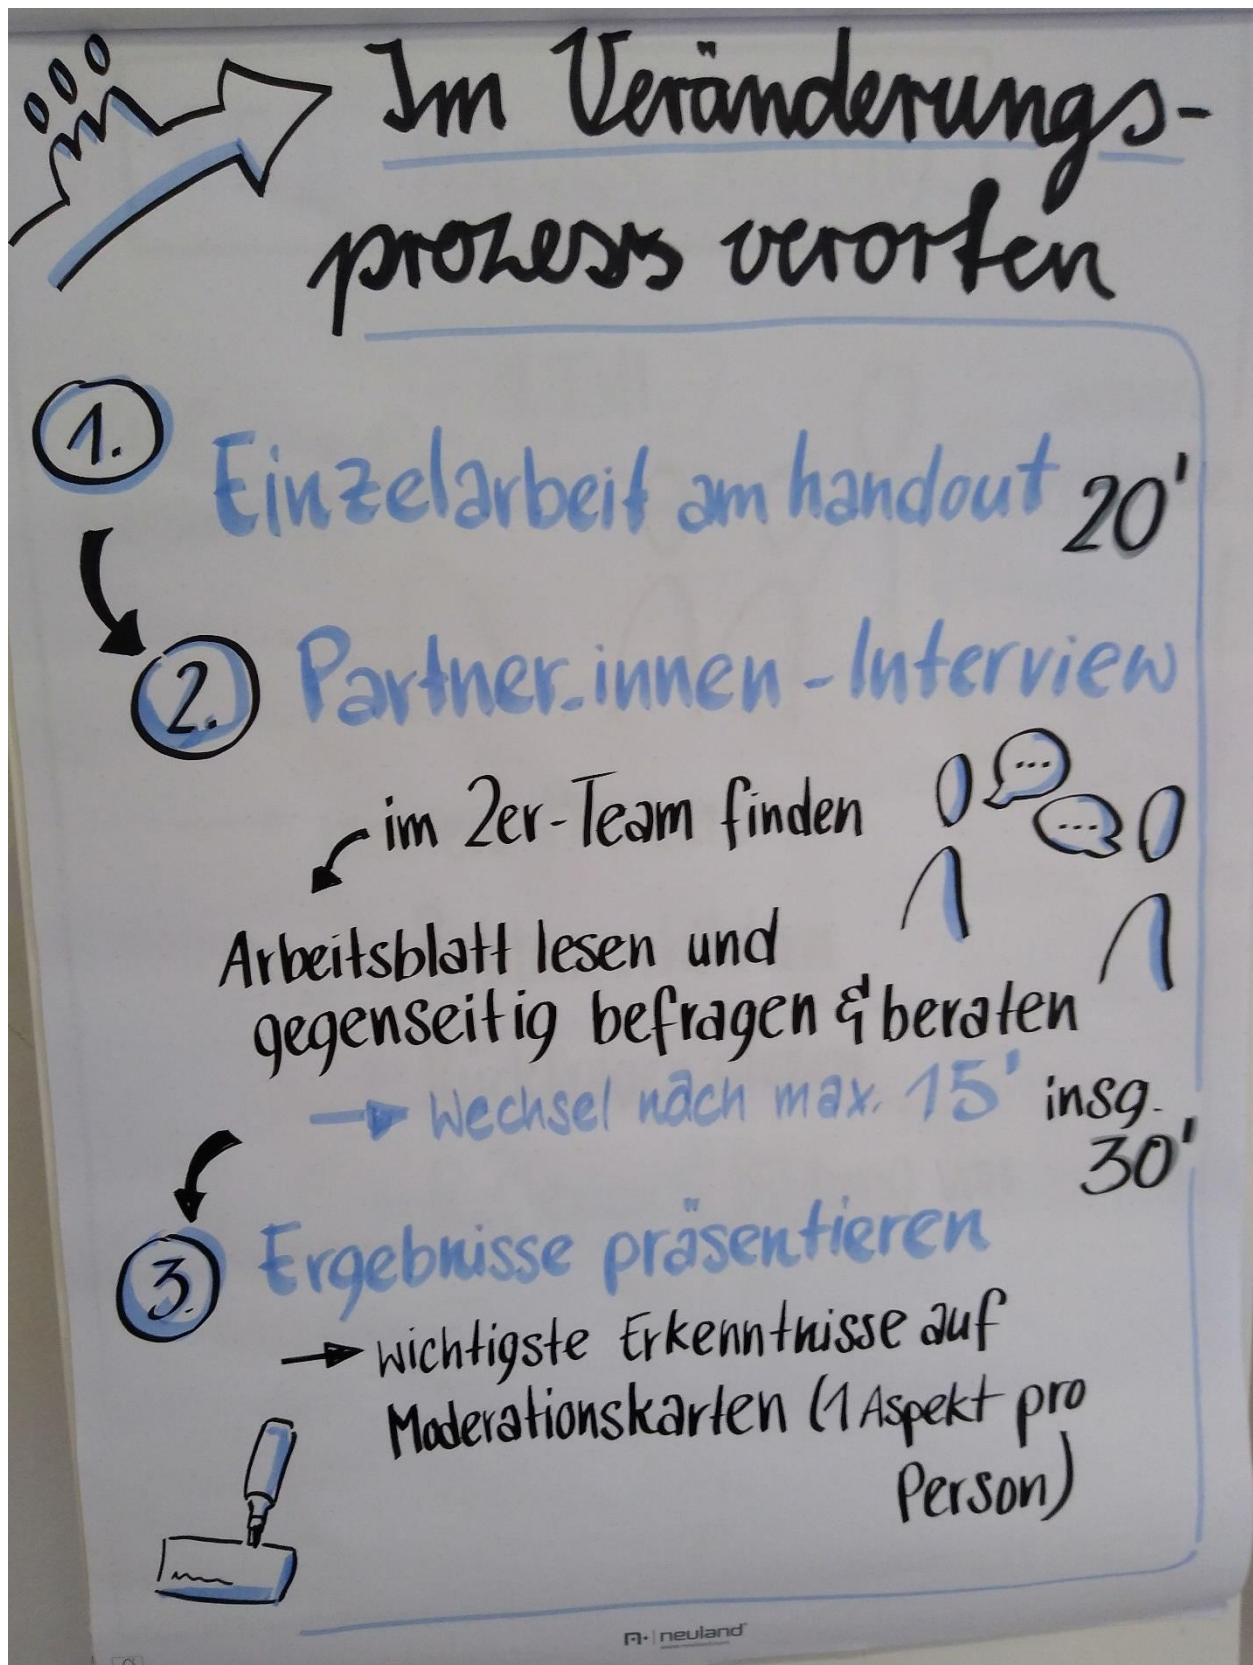 Im Veränderungs-
prozess verorten
1.
Einzelarbeit am handout 20'
2.
Partner.innen-Interview
im 2er-Team finden
...
...
Arbeitsblatt lesen und
gegenseitig befragen & beraten
→ Wechsel nach max. 15' insg.
30'
3.
Ergebnisse präsentieren
→ wichtigste Erkenntnisse auf
Moderationskarten (1 Aspekt pro
Person)
neuland